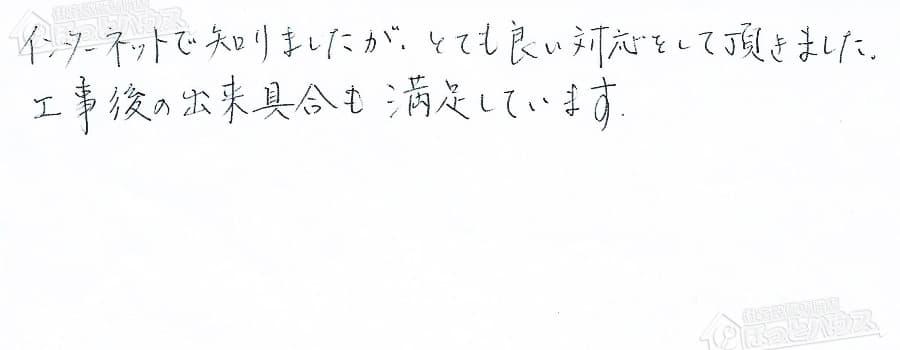 インターネットで知りましたが、とても良い対応をして頂きました。
工事後の出来具合も満足しています.
ほっとハウス